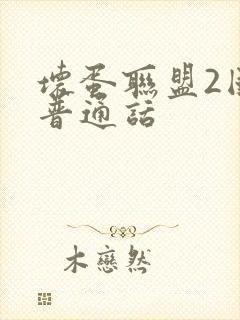 壞蛋聯盟2
普通話
木戀然